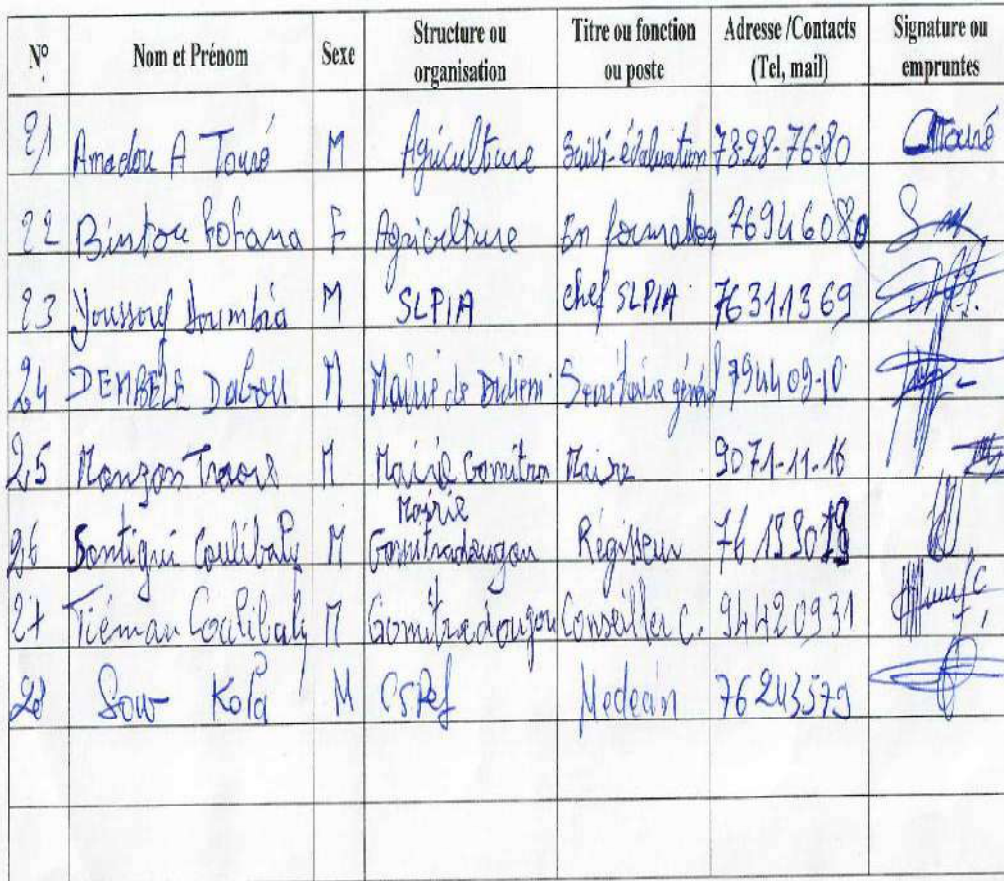 N° Nom et Prénom Sexe Structure ou organisation Titre ou fonction ou poste Adresse /Contacts (Tel, mail) Signature ou empruntes
21 Amadou A Touré M Agriculture Suivi-évaluation 73-28-76-80
22 Bintou Fofana F Agriculture En formation 76946080
23 Youssouf Doumbia M SLPIA chef SLPIA 76311369
24 DEMBELE Dabou M Mairie de Didieni Secrétaire général 794409-10
25 Monzon Traore M Mairie Gomitra Maire 9071-11-16
26 Santigui Coulibaly M Mairie Gomitradougou Régisseur
27 Tiéman Coulibaly M Gomitradougou Conseiller C. 94420931
28 Sow M CSRéf Medecin 76243579